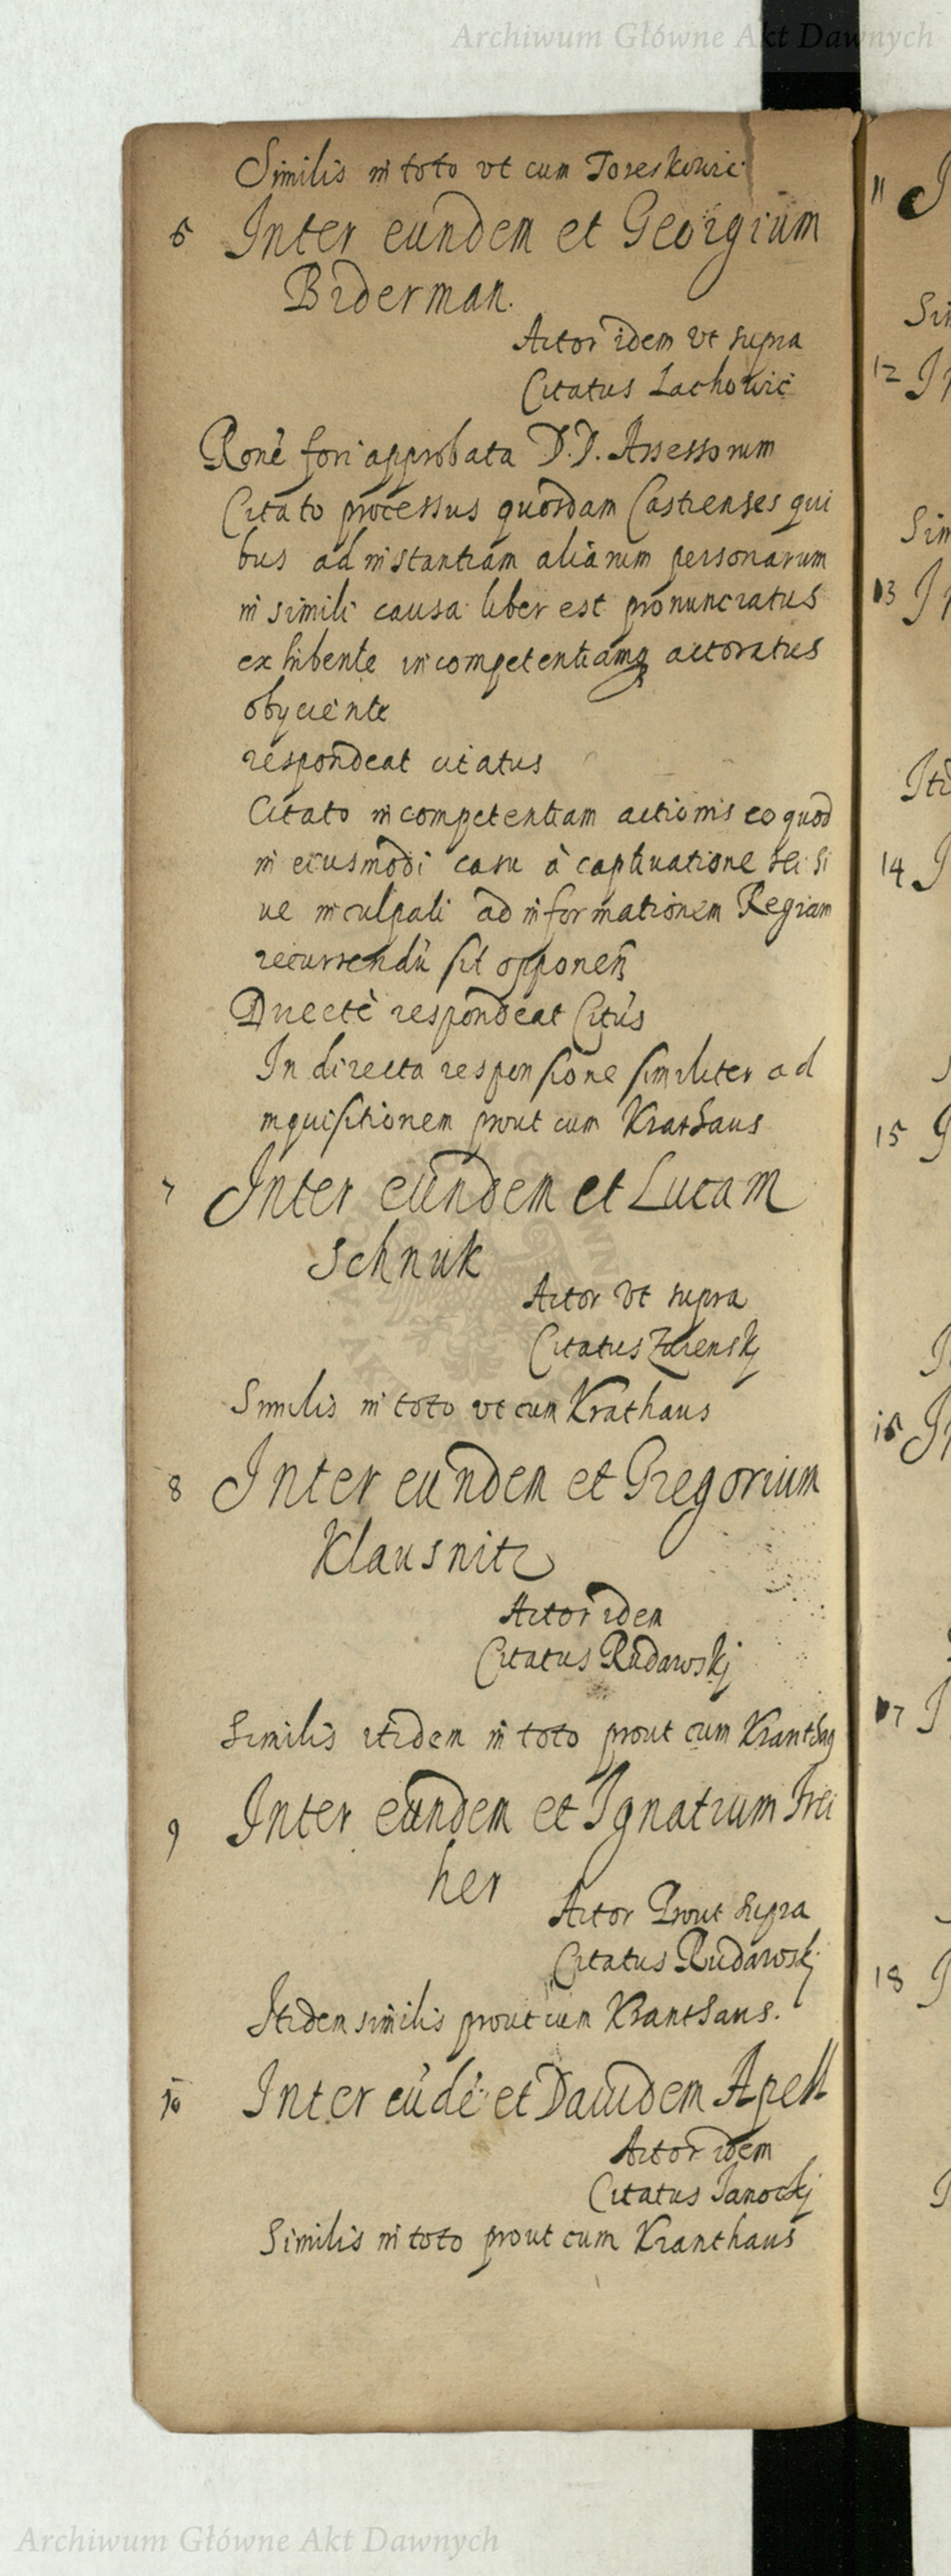 Archiwum Główne Akt Dawnych
Similis in toto vt cum Toreskowic
6 Inter eundem et Georgium
Biderman.
Actor idem vt supra
Citatus Lachowic
Rone fori approbata D.D. Assessorum
Citato processus quosdam Castrenses qui
bus ad instantiam aliarum personarum
in simili causa liber est pronunciatus
exhibente incompetentiamq actoratus
obyciente
respondeat citatus
Citato incompetentiam actionis eo quod
in eiusmodi casu à captivatione rei si
ue inculpati ad informationem Regiam
recurrendū sit opponen
Directè respondeat Citus
In directa responsione similiter ad
inquisitionem prout cum Krathaus
7 Inter eundem et Lucam
Schnuk
Actor vt supra
Citatus Zdrenskj
Similis in toto vt cum Krathaus
8 Inter eundem et Gregorium
Klausnitz
Actor idem
Citatus Rudawskj
Similis itidem in toto prout cum Kranthaus
9 Inter eundem et Ignatium Frei
her
Actor Prout supra
Citatus Rudawskj
Itidem similis prout cum Kranthaus.
10 Inter eūdē et Dauidem Apell
Actor idem
Citatus Janockj
Similis in toto prout cum Kranthaus
11
12
13
14
15
16
17
18
Archiwum Główne Akt Dawnych